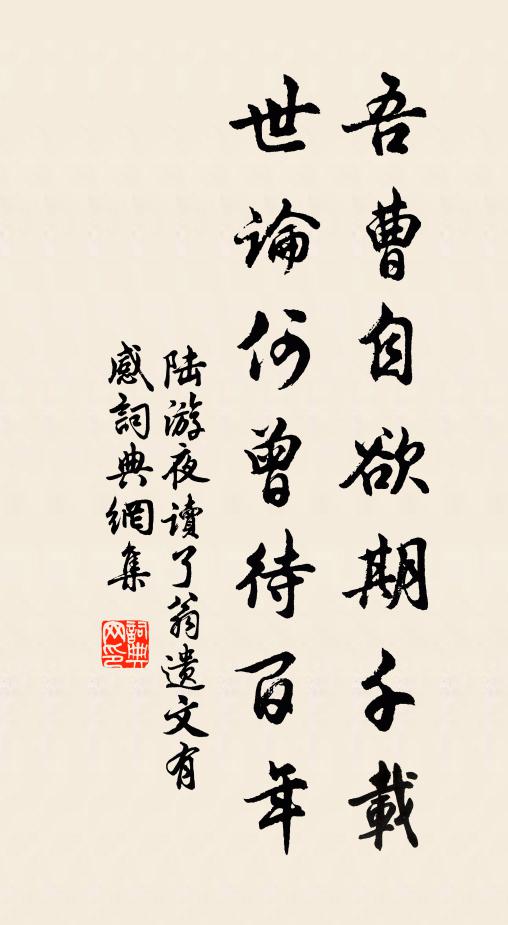 吾曹自欲期千載
世論何曾待百年
陆游夜讀了翁遗文有
感詞典網集
詞典
网印